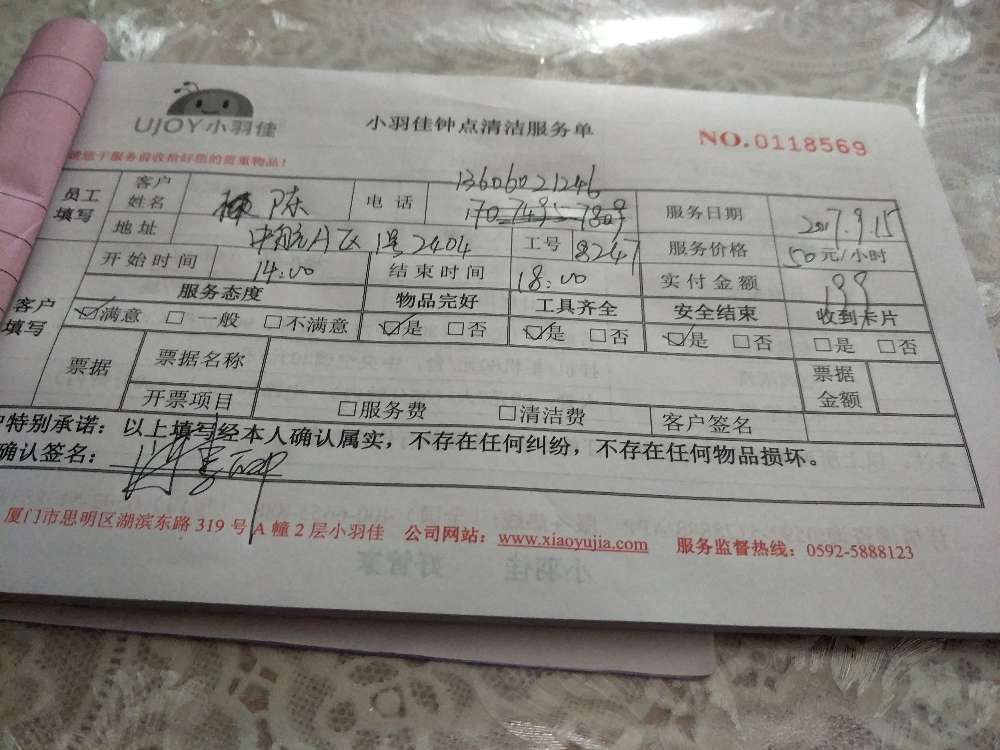 UJOY小羽佳
小羽佳钟点清洁服务单
NO.0118569
于服务前收拾好您的贵重物品!
员工填写 客户姓名 陈 电话 13606021246 服务日期 2017.9.15
地址 1号2404 工号 8247 服务价格 50元/小时
开始时间 14:00 结束时间 18:00 实付金额 199
客户填写 服务态度 物品完好 工具齐全 安全结束 收到卡片
☑满意 □一般 □不满意 ☑是 □否 ☑是 □否 ☑是 □否 □是 □否
票据 票据名称 票据金额
开票项目 □服务费 □清洁费 客户签名
户特别承诺:以上填写经本人确认属实,不存在任何纠纷,不存在任何物品损坏。
确认签名:
厦门市思明区湖滨东路 319 号 A 幢 2 层小羽佳 公司网站:www.xiaoyujia.com 服务监督热线:0592-5888123